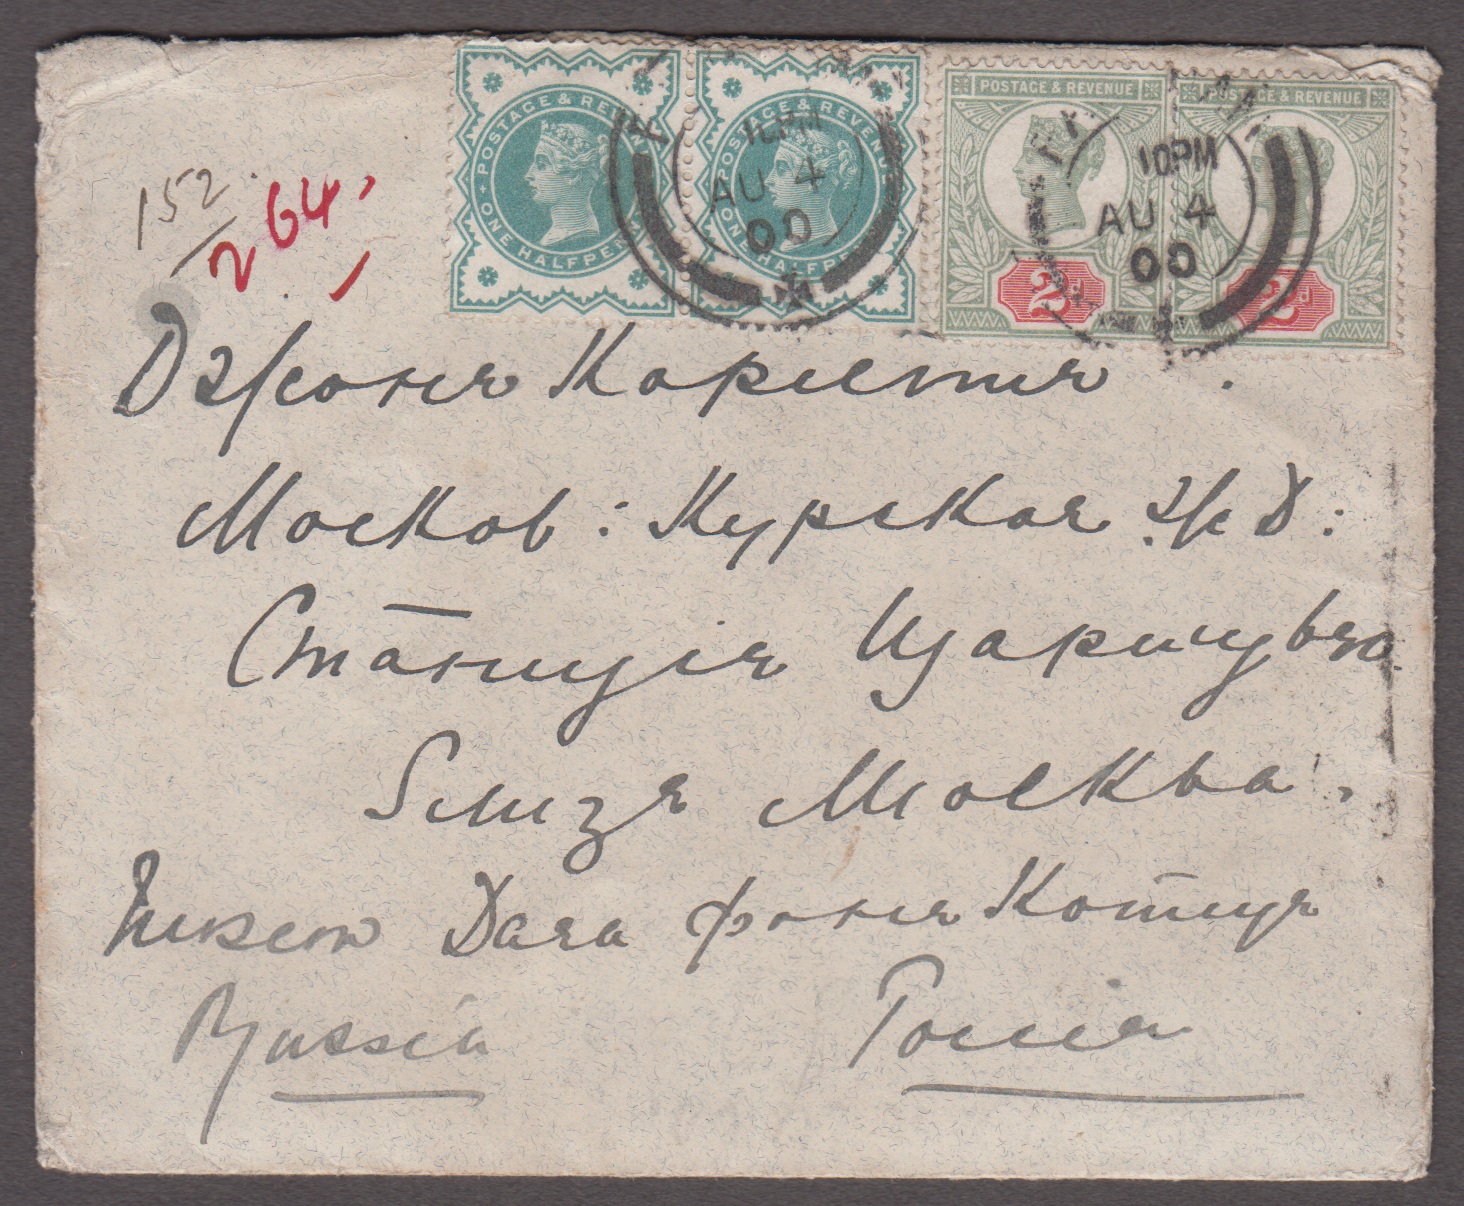 POSTAGE & REVENUE ONE HALFPENNY
POSTAGE & REVENUE ONE HALFPENNY
POSTAGE & REVENUE
POSTAGE & REVENUE
2d
2d
10PM
AU 4
00
10PM
AU 4
00
152/
264
Джонъ Карлетиъ
Москов: Курская ж Д:
Станція Царицыно
близъ Москва.
Дача фонъ Котицъ
Russia
Россія